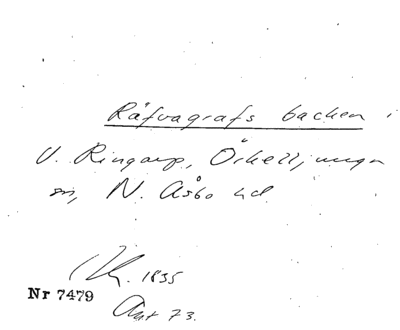 Räfvagrafs backen i
V. Ringarp, Örkelljunga
sn, N. Åsbo hd
1835
Nr 7479
Akt 73.